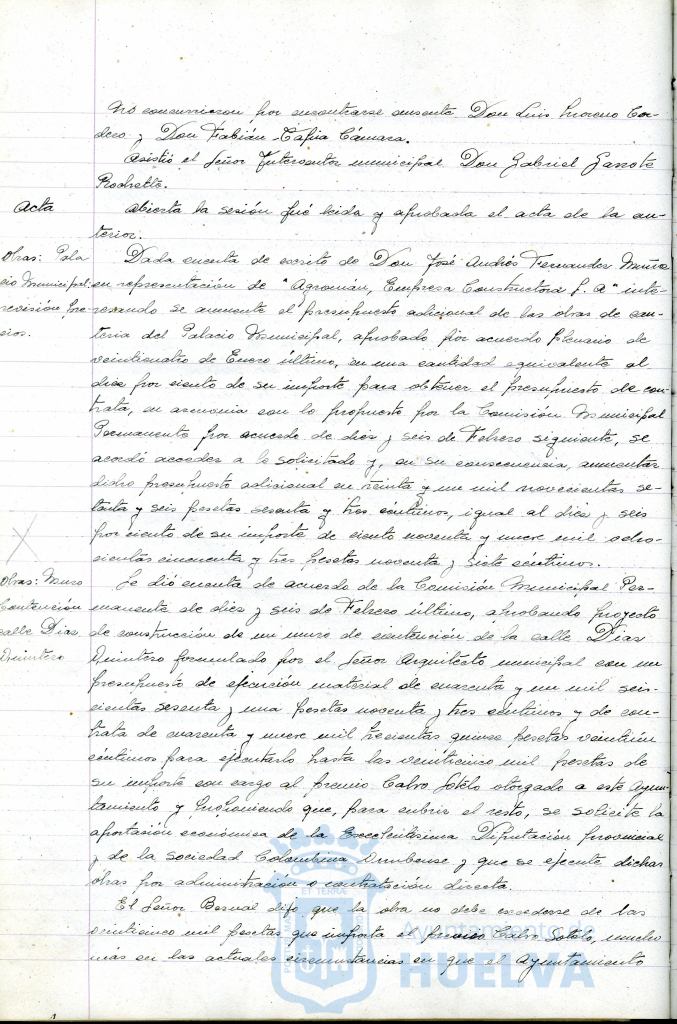 No concurrieron por encontrarse ausente Don Luis Moreno Cor-
dero y Don Fabián Tapia Cámara.
Asistió el Señor Interventor municipal Don Gabriel Garrote
Rochette.
Acta
Abierta la sesión fué leida y aprobada el acta de la an-
terior.
Obras: Pala
cio Municipal
revisión pre
cios.
Dada cuenta de escrito de Don José Andrés Fernandez
en representación de "Agroman, Empresa Constructora S. A" inte-
resando se aumente el presupuesto adicional de las obras de can-
teria del Palacio Municipal, aprobado por acuerdo plenario de
veinticuatro de Enero último, en una cantidad equivalente al
diez por ciento de su importe para obtener el presupuesto de con-
trata, en armonia con lo propuesto por la Comisión Municipal
Permanente por acuerdo de diez y seis de Febrero siguiente, se
acordó acceder a lo solicitado y, en su consecuencia, aumentar
dicho presupuesto adicional en treinta y un mil novecientas se-
tenta y seis pesetas sesenta y tres céntimos, igual al diez y seis
por ciento de su importe de ciento noventa y nueve mil ocho-
cientas cincuenta y tres pesetas noventa y siete céntimos.
Obras: Muro
Contención
calle Diaz
Quintero
Se dió cuenta de acuerdo de la Comisión Municipal Per-
manente de diez y seis de Febrero último, aprobando proyecto
de construcción de un muro de contención de la calle Diaz
Quintero formulado por el Señor Arquitecto municipal con un
presupuesto de ejecución material de cuarenta y un mil seis-
cientas sesenta y una pesetas noventa y tres céntimos y de con-
trata de cuarenta y nueve mil trecientas quince pesetas veintiún
céntimos para ejecutarlo hasta las veinticinco mil pesetas de
su importe con cargo al premio Calvo Sotelo otorgado a este Ayun-
tamiento y proponiendo que, para cubrir el resto, se solicite la
aportación económica de la Excelentísima Diputación provincial
y de la Sociedad Colombina Onubense y que se ejecute dichas
obras por administración o contratación directa.
El Señor Bernal dijo que la obra no debe excederse de las
veinticinco mil pesetas que importa el premio Calvo Sotelo, mucho
más en las actuales circunstancias en que el Ayuntamiento
Ayuntamiento de
HUELVA